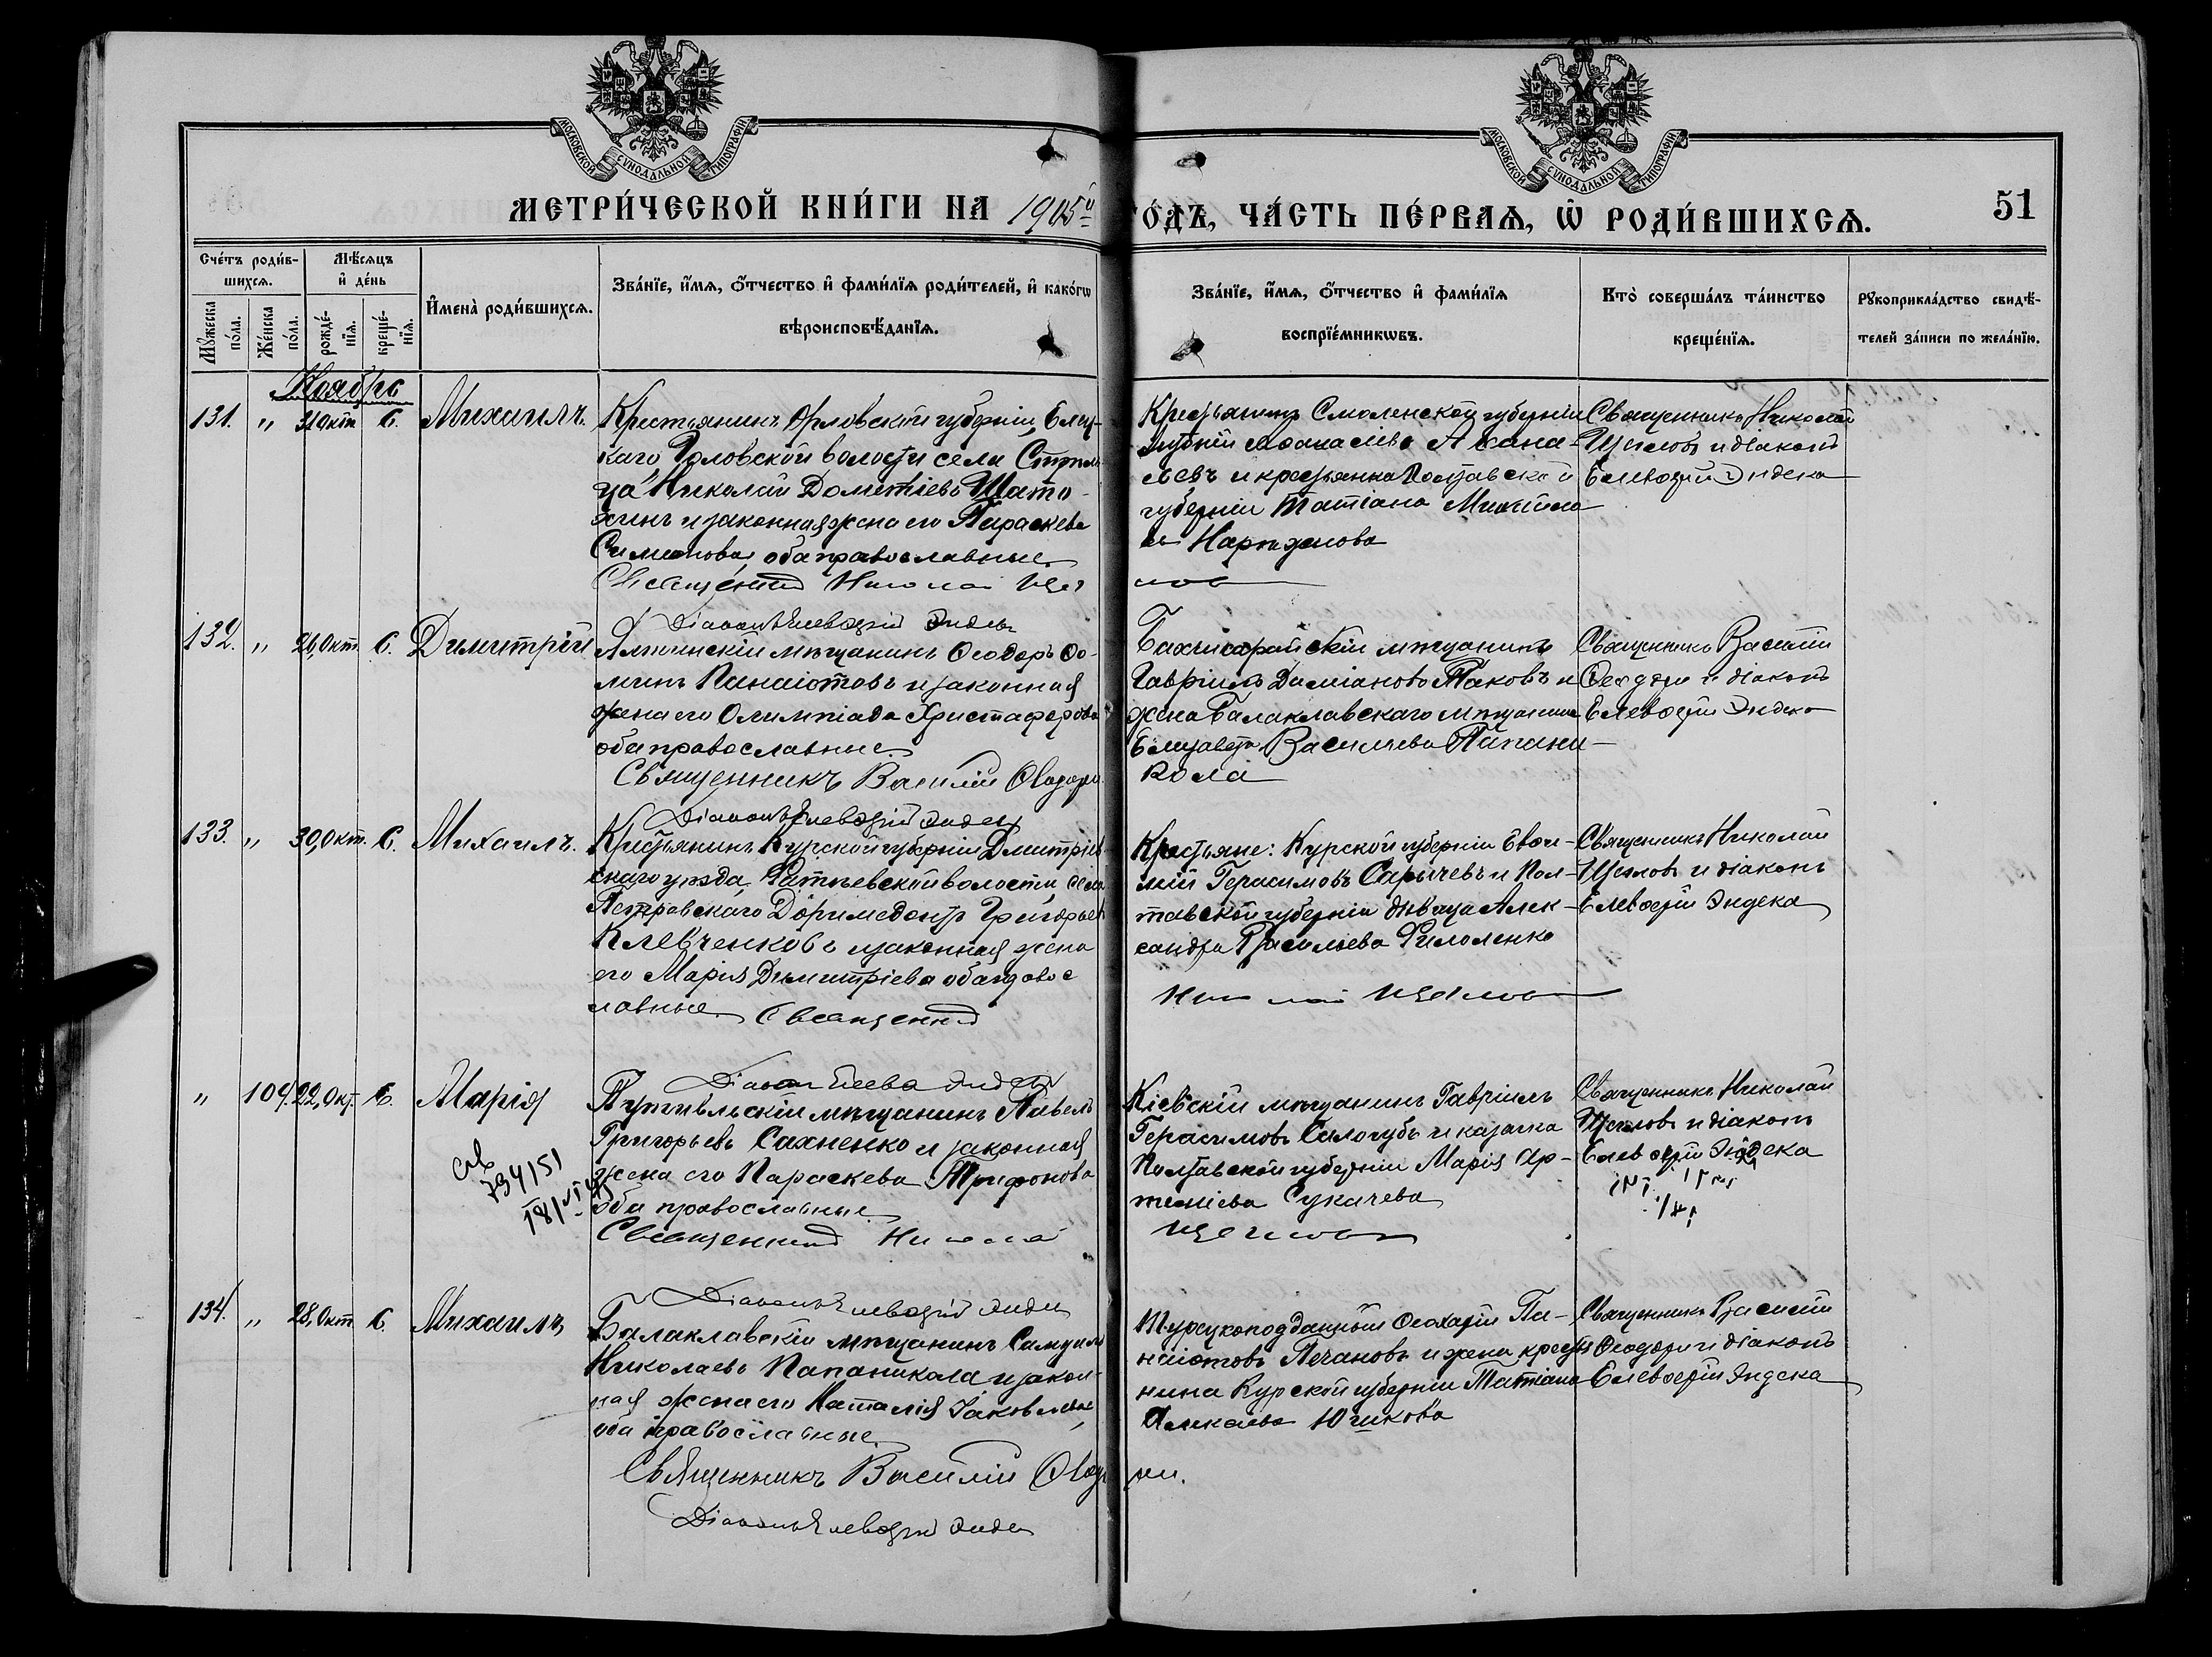 МОСКОВСКОЙ СУНОДАЛЬНОЙ ТИПОГРАФІИ
МОСКОВСКОЙ СУНОДАЛЬНОЙ ТИПОГРАФІИ
МЕТРИ́ЧЕСКОЙ КНИ́ГИ НА 1905й
О́ДЪ, ЧА́СТЬ ПЕ́РВАѦ, Ѡ҆ РОДИ́ВШИХСѦ.
51
Сче́тъ роди́в-
шихсѧ.
Мꙋжеска
по́ла.
Же́нска
по́ла.
Мѣ́сѧцъ
и҆ де́нь
рожде́-
нїѧ.
креще́-
нїѧ.
И҆мена̀ роди́вшихсѧ.
Зва́нїе, и҆́мѧ, ѻ҆́тчество и҆ фами́лїѧ роди́телей, и҆ како́гѡ
вѣроисповѣ́данїѧ.
Зва́нїе, и҆́мѧ, ѻ҆́тчество и҆ фами́лїѧ
воспрїе́мникѡвъ.
Кто̀ соверша́лъ та́инство
креще́нїѧ.
Рꙋкоприкла́дство свидѣ́-
телей за́писи по жела́нїю.
Ноябрь
131. " 31 Окт. 6. Михаилъ.
Крестьянинъ Орловской губерніи, Елец-
каго
волости села
Николай Дометіевъ Шато-
хинъ и законная жена его Параскева
Симеонова, оба православные
Священникъ Николай
Діаконъ Елевѳерій Эндека
Крестьянинъ Смоленской губерніи
Аѳанасіевъ
и крестьянка Полтавской
губерніи Татіана
Священникъ Николай
Щегловъ и діаконъ
Елевѳерій Эндека
132. " 26, Окт. 6. Димитрій
Ялтинскій мѣщанинъ Ѳеодоръ Ѳо-
минъ Панаіотовъ и законная
жена его Олимпіада Христофорова
оба православные
Священникъ Василій Ѳеодори
Діаконъ Елевѳерій Эндека
Бахчисарайскій мѣщанинъ
Гавріилъ Даміановъ Таковъ и
жена Балаклавскаго мѣщанина
Елизавета Василіева Папани-
кола
Священникъ Василій
Ѳеодори и діаконъ
Елевѳерій Эндека
133. " 30, Окт. 6. Михаилъ.
Крестьянинъ Курской губерніи Дмитріев-
скаго уѣзда, волости, села
Петровскаго Доримедонтъ Григорьевъ
Клевченковъ и законная жена
его Марія Димитріева оба правос
лавные Священникъ
Николай Щегловъ
Діаконъ Елевѳ Эндека
Крестьяне: Курской губерніи Евѳи-
мій Герасимовъ Сарычевъ и Пол-
тавской губерніи дѣвица Алек-
сандра Васильева Филоненко
Священникъ Николай
Щегловъ и діаконъ
Елевѳерій Эндека
" 109. 22, Окт. 6. Марія
734/51
Путивльскій мѣщанинъ Павелъ
Григорьевъ Сахненко и законная
жена его Параскева Трифонова
оба православные
Священникъ Николай
Щегловъ
Діаконъ Елевѳерій Эндека
Кіевскій мѣщанинъ Гавріилъ
Герасимовъ Сологубъ и казачка
Полтавской губерніи Марія Ар-
теміева Сукачева
Священникъ Николай
Щегловъ и діаконъ
Елевѳерій Эндека
134. " 28, Окт. 6. Михаилъ
Балаклавскій мѣщанинъ Самуилъ
Николаевъ Папаникола и закон-
ная жена его Наталія Іаковлева
оба православные
Священникъ Василій Ѳеодори.
Діаконъ Елевѳерій Эндека
Турецкоподданный Ѳеохарій Па-
наіотовъ Печановъ и жена крестья
нина Курской губерніи Татіана
Юшкова
Священникъ Василій
Ѳеодори и діаконъ
Елевѳерій Эндека